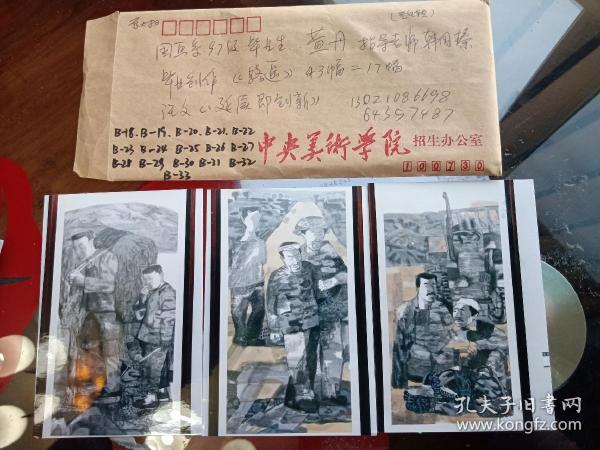 国画系97级毕业生 黄丹 指导老师韩国臻
毕业创作《路遥》43幅=17幅
论文《延展即创新》 13021086698
64357487
B-18. B-19. B-20. B-21. B-22
B-23 B-24 B-25 B-26 B-27
B-28 B-29 B-30 B-31 B-32
B-33
中央美術学院 招生办公室
100730
孔夫子旧书网
www.kongfz.com